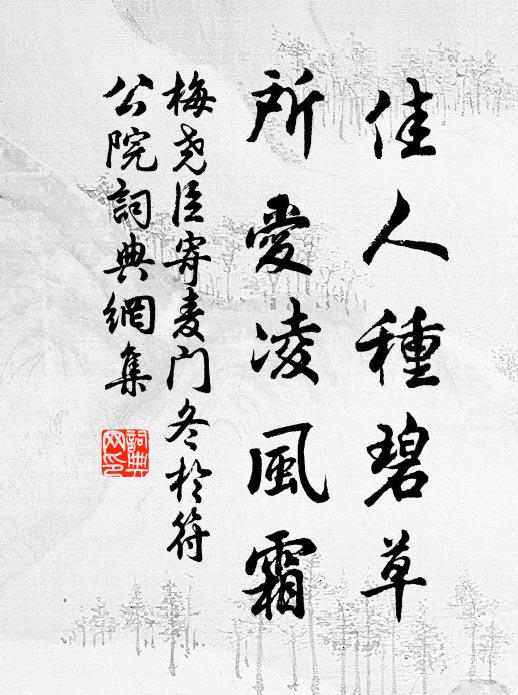 佳人種碧草
所愛凌風霜
梅尧臣寄麦门冬於符
公院詞典網集
詞典
网印